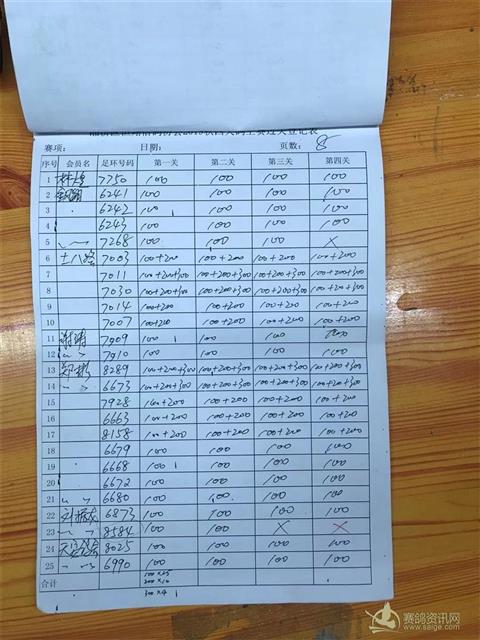 赛项： 日期： 页数：8
序号 会员名 足环号码 第一关 第二关 第三关 第四关
1 7750 100 100 100 100
2 6241 100 100 100 100
3 6242 100 100 100 100
4 6243 100 100 100 100
5 7268 100 100 100 X
6 7003 100+200 100+200 100+200 100+200
7 7011 100+200+300 100+200+300 100+200+300 100+200+300
8 7030 100+200+300 100+200+300 100+200+300 100+200+300
9 7014 100+200 100+200 100+200 100+200
10 7007 100+200 100+200 100+200 100+200
11 7909 100 100 100 100
12 7910 100 100 100 100
13 郑彬 8289 100+200+300 100+200+300 100+200+300 100+200+300
14 6673 100+200+300 100+200+300 100+200+300 100+200+300
15 7928 100+200 100+200 100+200 100+200
16 6663 100+200 100+200 100+200 100+200
17 8158 100+200 100+200 100+200 100+200
18 6679 100 100 100 100
19 6668 100 100 100 100
20 6672 100 100 100 100
21 6680 100 100 100 100
22 6873 100 100 100 100
23 8584 100 100 X X
24 8025 100 100 100 100
25 6990 100 100 100 100
合计 100×25
200×10
300×4
赛鸽资讯网
www.saige.com